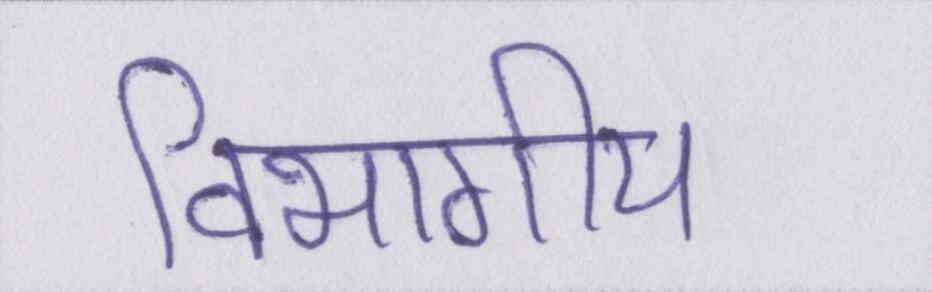 विभागीय